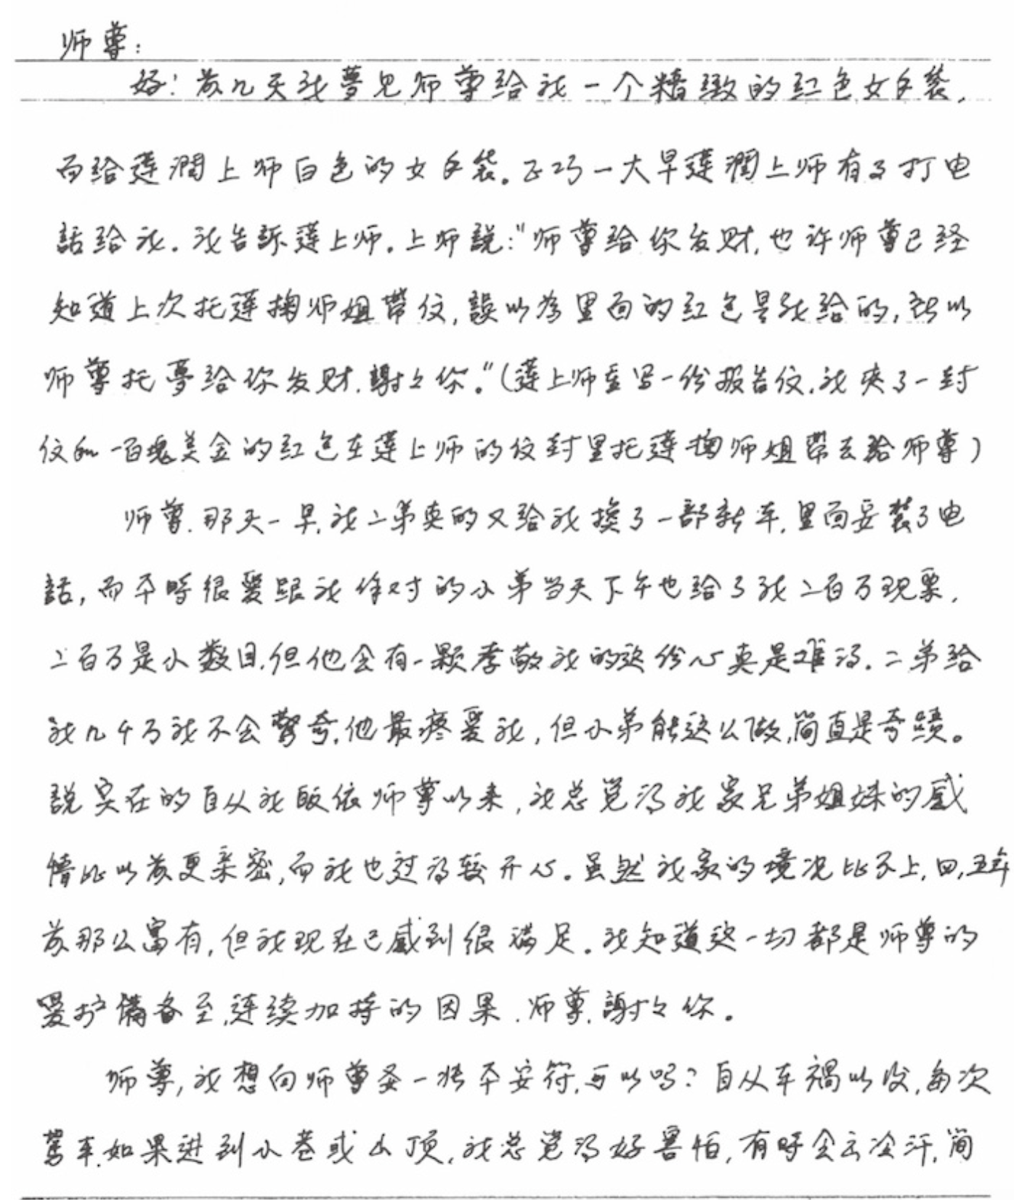 师尊：
好！前几天我夢见师尊给我一个精緻的红色女手袋，
而给莲潤上师白色的女手袋。正巧一大早莲潤上师有事打电
話给我。我告訴莲上师。上师說："师尊给你发财，也许师尊已经
知道上次托莲梅师姐带信，誤以为里面的红包是我给的，所以
师尊托夢给你发财，謝々你。"（莲上师要写一份报告信，我夹了一封
信和一百塊美金的红包在莲上师的信封里托莲梅师姐帶去给师尊）
师尊，那天一早，我二弟真的又给我換了一部新车，里面安裝了电
話，而平時很爱跟我作对的小弟当天下午也给了我二百万现票，
二百万是小数目，但他会有一颗孝敬我的这份心真是难得。二弟给
我几千万我不会驚奇，他最疼爱我，但小弟能这么做，简直是奇蹟。
說实在的自从我皈依师尊以来，我总觉得我家兄弟姐妹的感
情比以前更亲密，而我也过得较开心。虽然我家的境况比不上，四，五年
前那么富有，但我现在已感到很满足。我知道这一切都是师尊的
爱护備备至，连续加持的因果，师尊，謝々你。
师尊，我想向师尊要一张平安符，可以吗？自从车禍以后，每次
驾车，如果进到小巷或山顶，我总觉得好害怕，有時会出冷汗，简